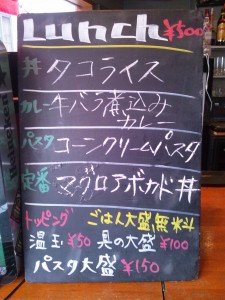 Lunch ¥500
丼 タコライス
カレー 牛バラ煮込み
カレー
パスタ コーンクリームパスタ
定番 マグロアボカド丼
トッピング ごはん大盛無料
温玉¥50 具の大盛¥100
パスタ大盛¥150